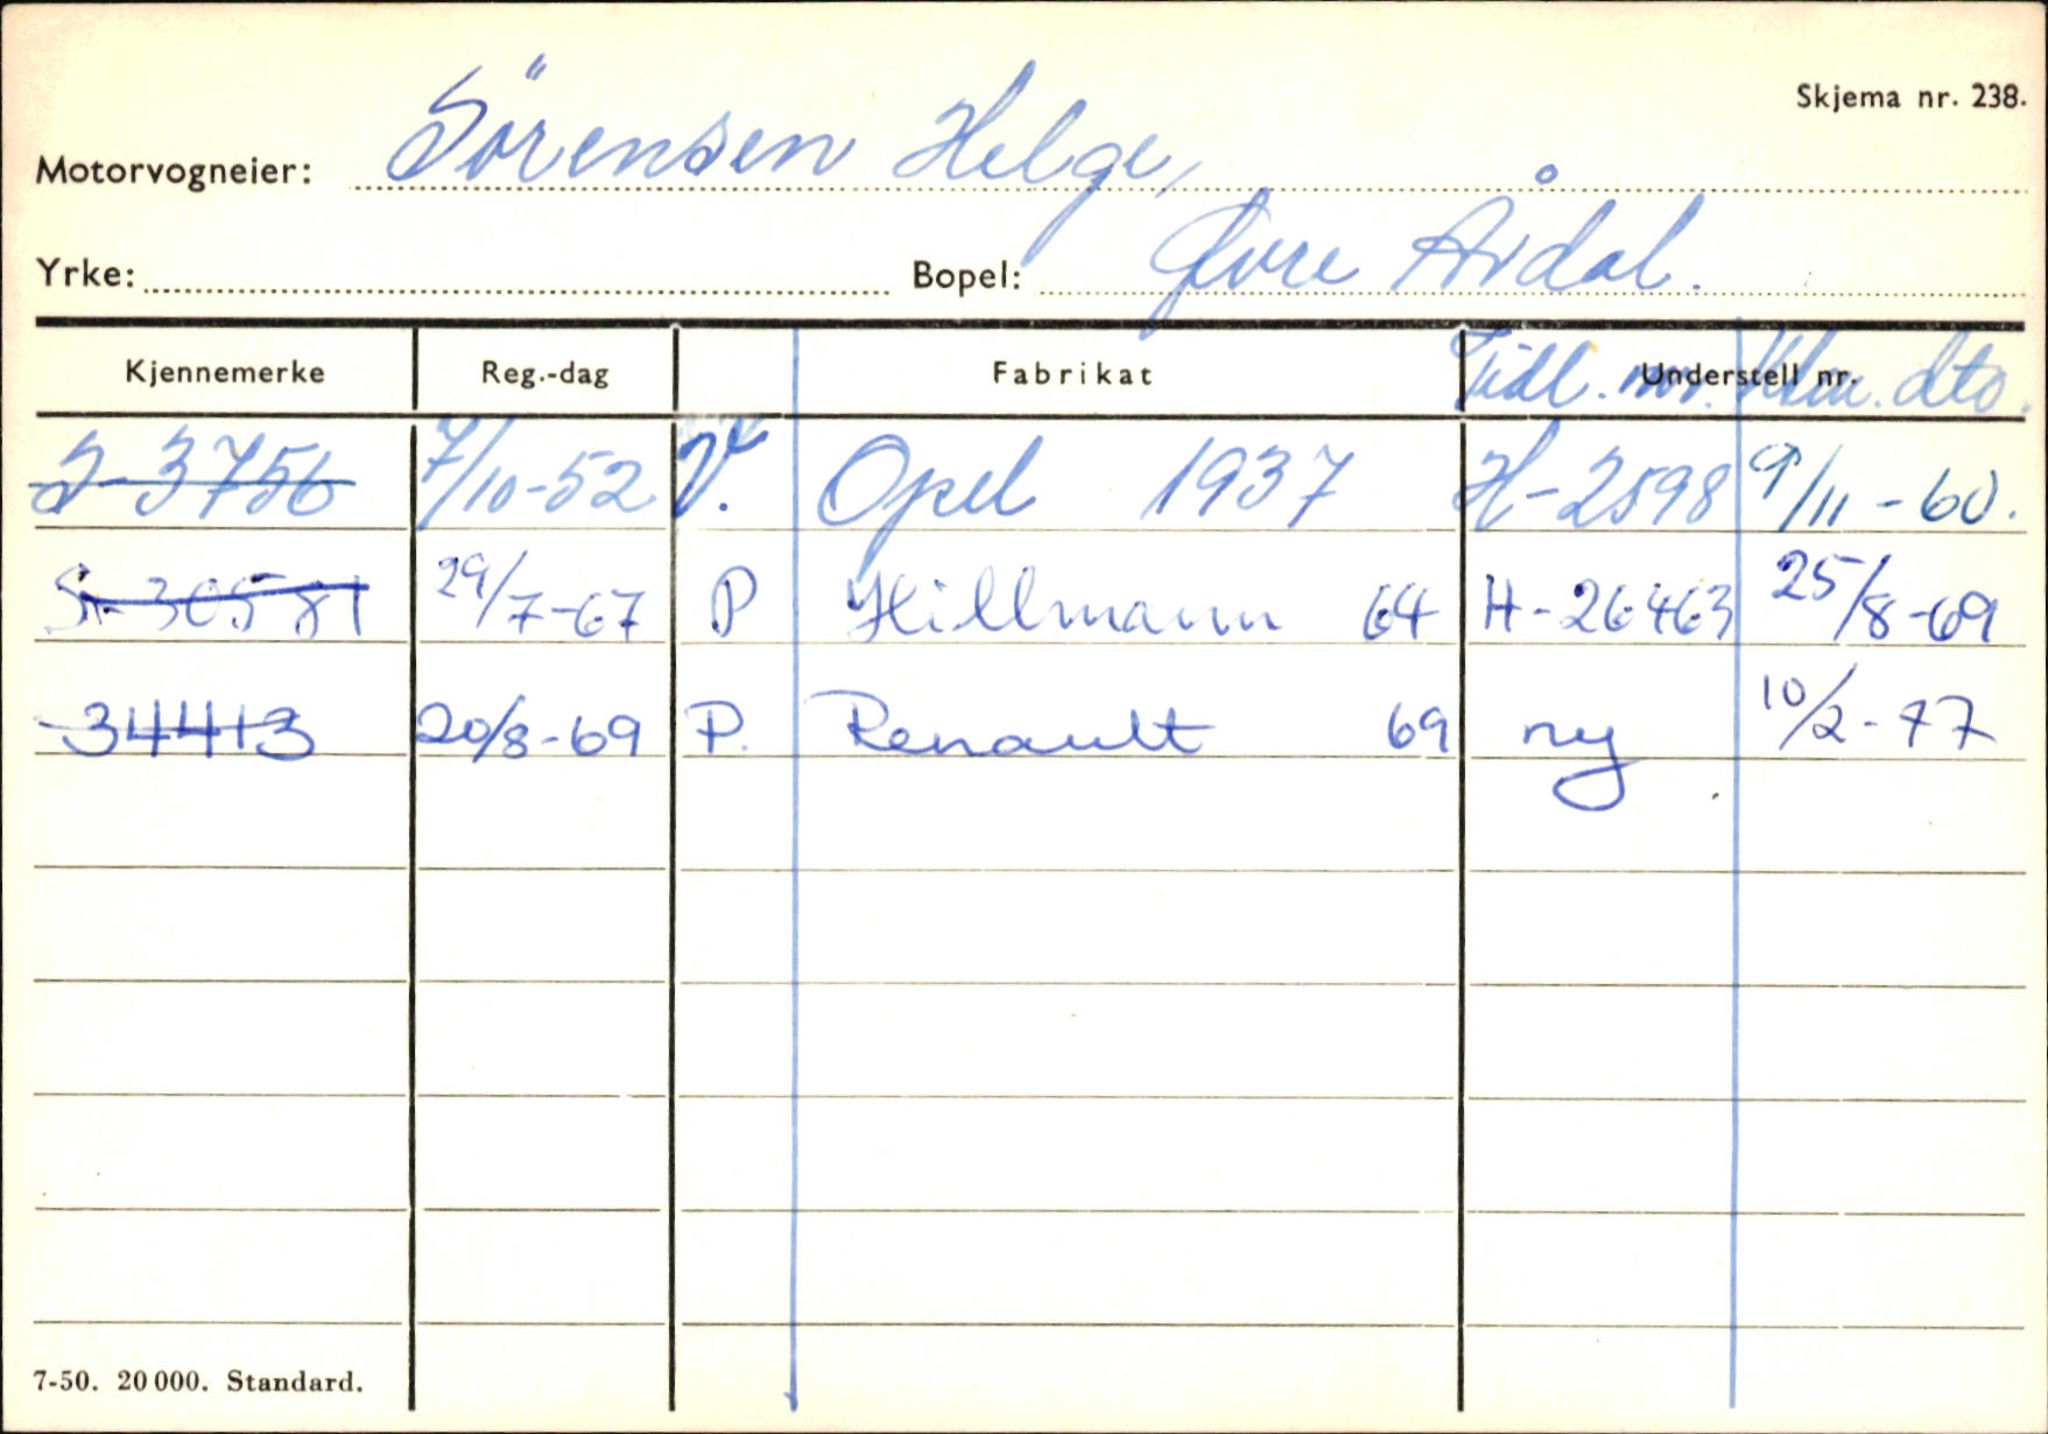 Skjema nr. 238.
Motorvogneier: Sörensen Helge,
Yrke: Bopel: Øvre Årdal.
Kjennemerke Reg.-dag Fabrikat Tidl. nr. Understell nr. dto.
S-3756 7/10-52 V. Opel 1937 H-2598 9/11-60.
S-30581 29/7-67 P Hillmann 64 H-26463 25/8-69
34413 20/8-69 P. Renault 69 ny 10/2-77
7-50. 20 000. Standard.